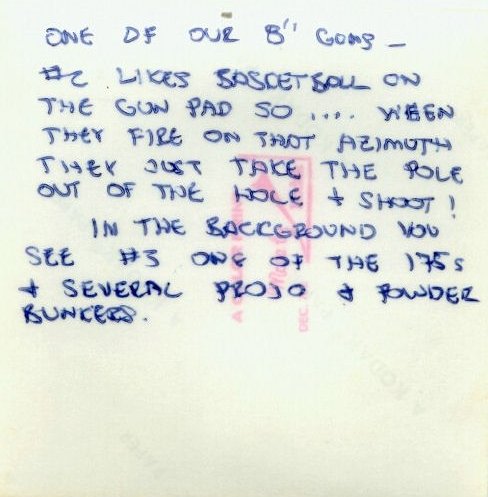 ONE OF OUR 8" GUNS –
#2 LIKES BASKETBALL ON
THE GUN PAD SO .... WHEN
THEY FIRE ON THAT AZIMUTH
THEY JUST TAKE THE POLE
OUT OF THE HOLE & SHOOT!
IN THE BACKGROUND YOU
SEE #3 ONE OF THE 175s
& SEVERAL PROJO & POWDER
BUNKERS.